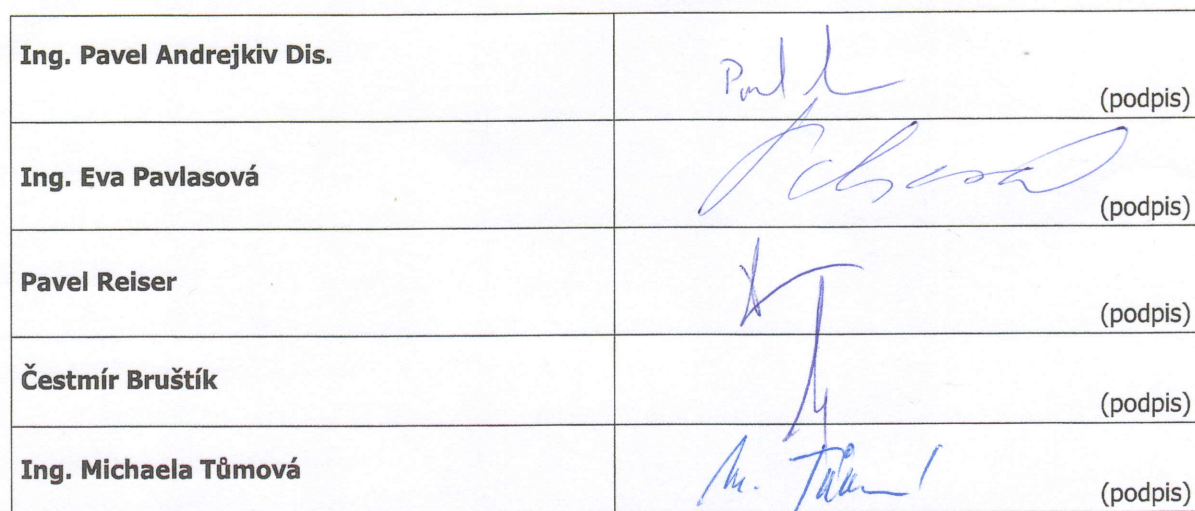 Ing. Pavel Andrejkiv Dis.
(podpis)
Ing. Eva Pavlasová
(podpis)
Pavel Reiser
(podpis)
Čestmír Bruštík
(podpis)
Ing. Michaela Tůmová
M. Tůmová
(podpis)